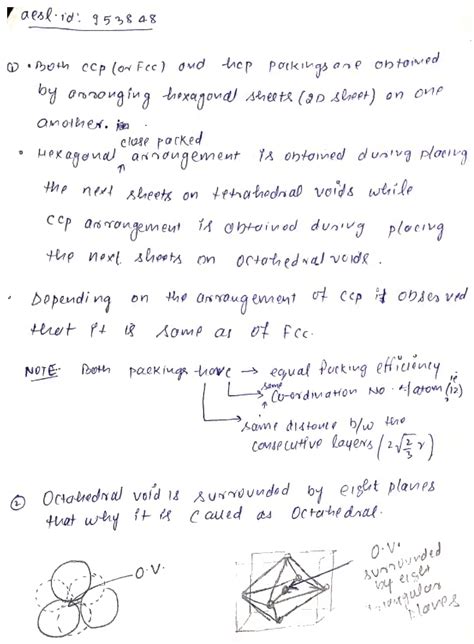 aesl.id: 953848
① • Both ccp (or Fcc) and hcp packings are obtained
by arranging hexagonal sheets (2D sheet) on one
another.
• Hexagonal close packed arrangement is obtained during placing
the next sheets on tetrahedral voids while
ccp arrangement is obtained during placing
the next sheets on octahedral voids.
• Depending on the arrangement of ccp it observed
that it is same as of Fcc.
NOTE: Both packings have → equal Packing efficiency
→ same co-ordination No. of atom (12)
→ same distance b/w the
consecutive layers (2√2/3 r)
② Octahedral void is surrounded by eight planes
that why it is called as Octahedral.
O.V.
O.V.
surrounded
by eight
triangular
planes